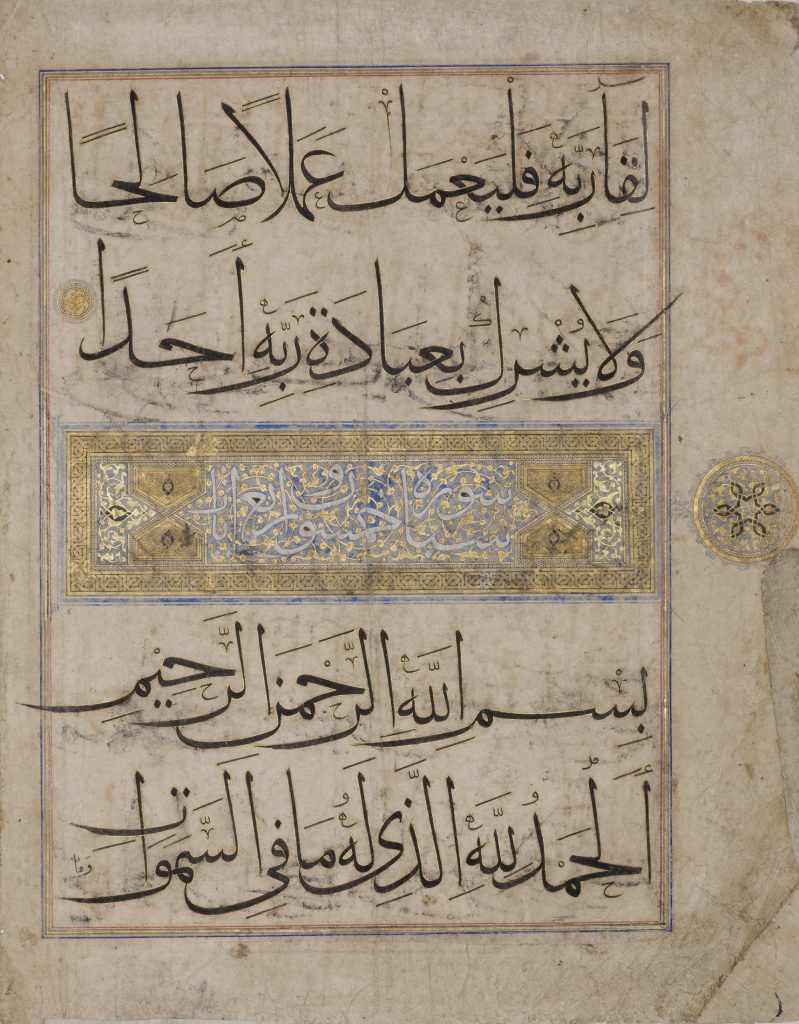 لِقَآءَ رَبِّهِ فَلْيَعْمَلْ عَمَلًا صَالِحًا
وَلَا يُشْرِكْ بِعِبَادَةِ رَبِّهِ أَحَدًا
سورة سبا خمسون واربع ايات
بِسْمِ اللَّهِ الرَّحْمَنِ الرَّحِيمِ
أَلْحَمْدُ لِلَّهِ الَّذِى لَهُ مَا فِى السَّمَوَاتِ
وَمَا